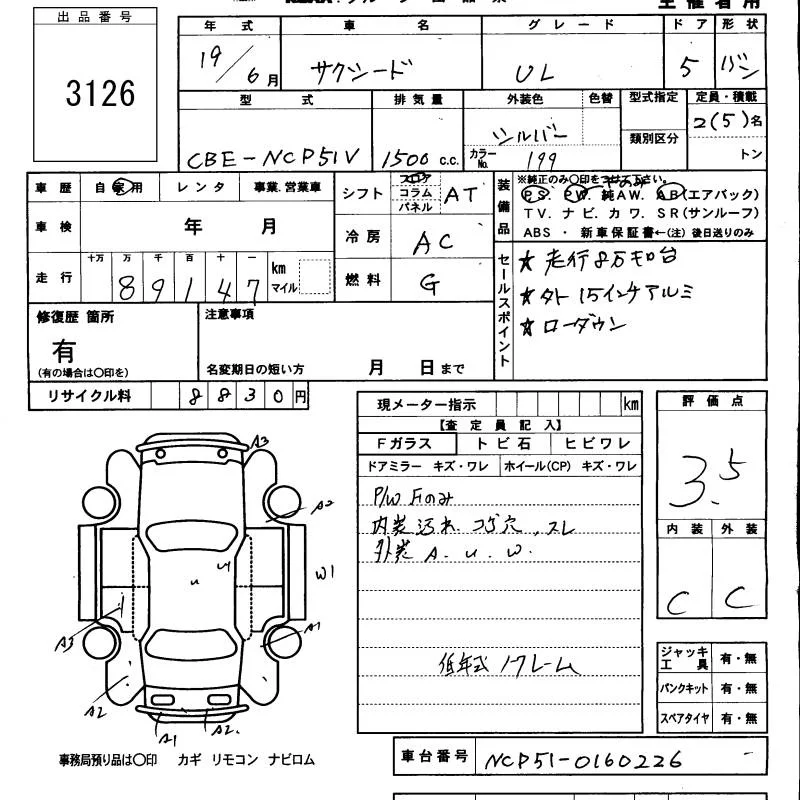 出品番号
3126
年式 車名 グレード ドア 形状
19/6月 サクシード UL 5 バン
型式 排気量 外装色 色替 型式指定 定員・積載
CBE-NCP51V 1500 c.c. シルバー カラーNo. 199 類別区分 2(5)名
トン
車歴 自家用 レンタ 事業.営業車
車検 年 月
走行 十万 万 千 百 十 一 km マイル
8 9 1 4 7
シフト フロア コラム パネル AT
冷房 AC
燃料 G
装備品
※純正のみ〇印を下さい。
PS. PW. 純AW. AB(エアバック)
TV. ナビ. カワ. SR(サンルーフ)
ABS ・ 新車保証書←(注) 後日送りのみ
セールスポイント
☆走行8万キロ台
☆外15インチアルミ
☆ローダウン
修復歴 箇所
有
(有の場合は〇印を)
注意事項
名変期日の短い方 月 日まで
リサイクル料 8 8 3 0 円
現メーター指示 km
【査定員記入】
Fガラス トビ石 ヒビワレ
ドアミラー キズ・ワレ ホイール(CP) キズ・ワレ
P/W Fのみ
内装汚れ コゲ穴、スレ
外装 A. U. W.
低年式 1クレーム
評価点
3.5
内装 外装
C C
ジャッキ工具 有・無
パンクキット 有・無
スペアタイヤ 有・無
A3
A2
U U
W1
A3
A1
A2
A1 A2.
事務局預り品は〇印 カギ リモコン ナビロム
車台番号 NCP51-0160226 -